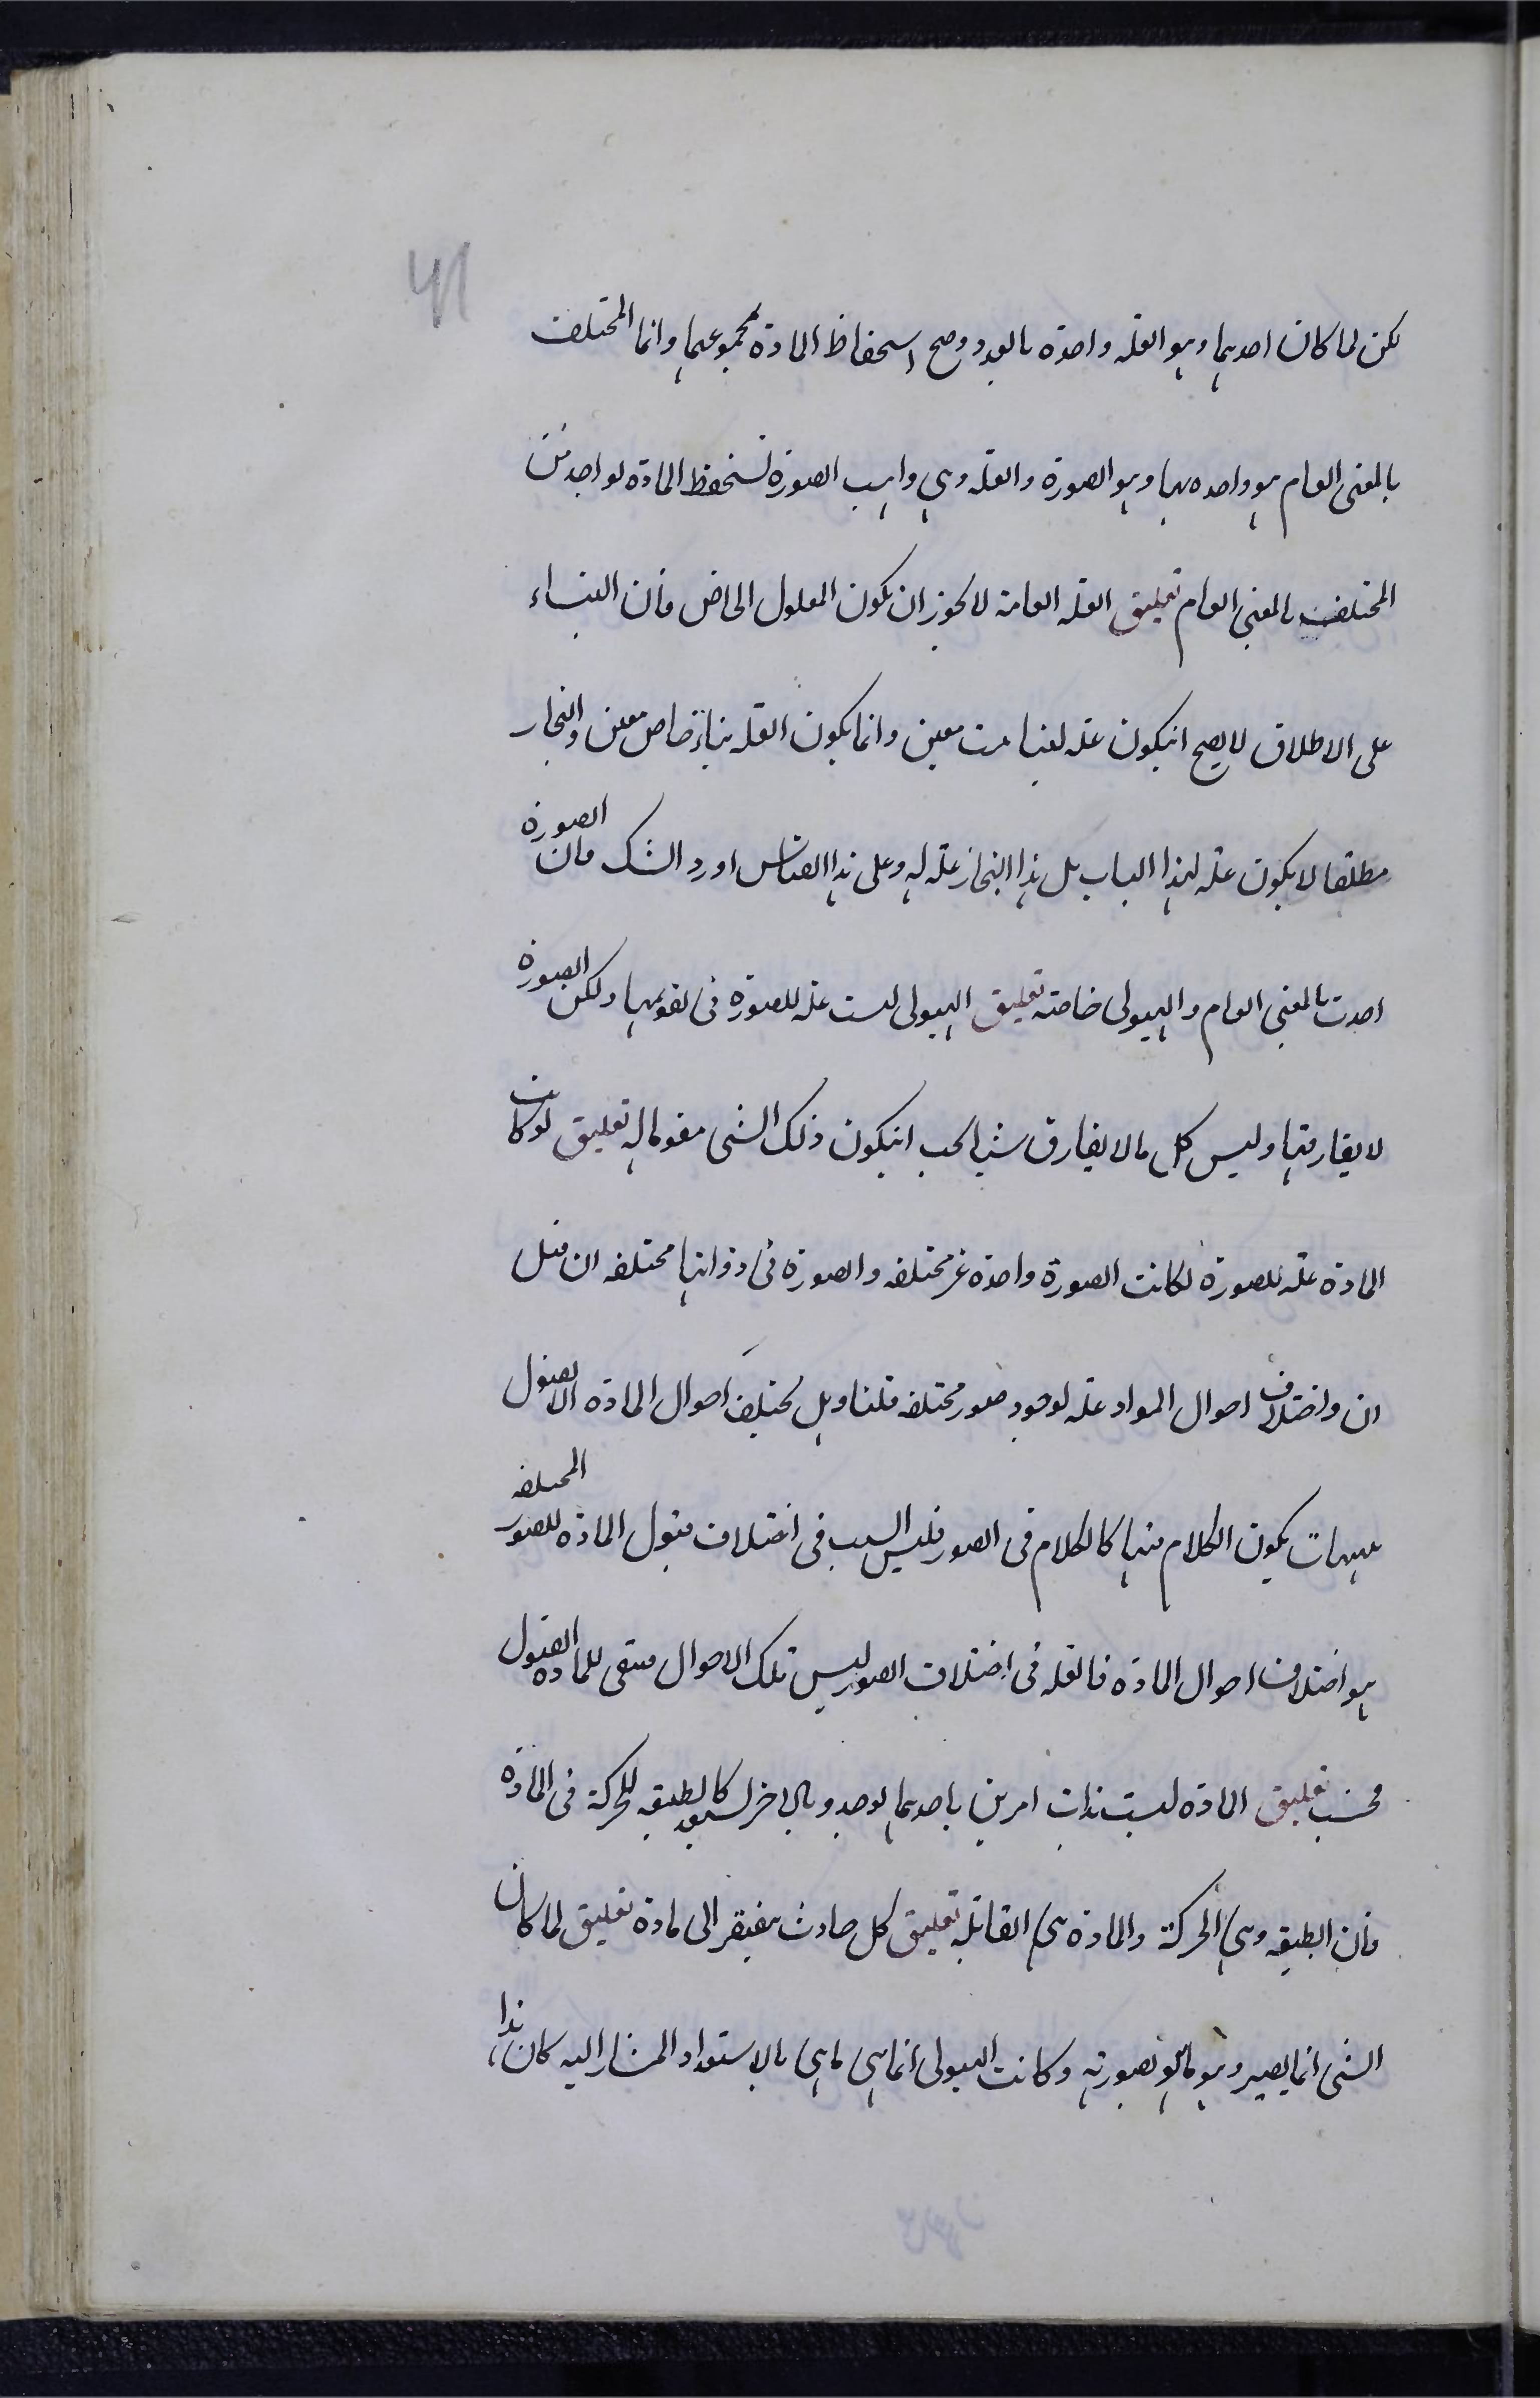 41
لكن لما كان احدهما وهو العله واحدة بالعدد وصح استحفاظ المادة بمجموعهما وانما المختلف
بالمعنى العام هو واحد منهما وهو الصورة والعله وهي واهب الصورة تستحفظ المادة لواحد من
المختلف بالمعنى العام تعليق العله العامة لا يجوز ان يكون المعلول الخاص فان البناء
على الاطلاق لا يصح انيكون عله لبناء معين وانما يكون العله بناء خاص معين والنجار
مطلقا لا يكون عله لهذا الباب بل هذا النجار عله له وعلى هذا القياس اورد الشك فان الصورة
احدت بالمعنى العام والهيولى خاصة تعليق الهيولى ليست عله للصورة في تقويمها ولكن الصورة
لا يفارقها وليس كل ما لا يفارق شيا يجب انيكون ذلك الشي مقوما له تعليق لو كانت
المادة عله للصورة لكانت الصورة واحدة غير مختلفه والصورة في ذواتها مختلفه ان قيل
ان واختلاف احوال المواد عله لوجود صور مختلفه قلنا وهل يختلف احوال المادة الا لقبول
هيهات يكون الكلام فيها كالكلام في الصور فليس السبب في اختلاف قبول المادة للصور المختلفه
هو اختلاف احوال المادة فالعله في اختلاف الصور ليس تلك الاحوال فبقى للمادة القبول
فحسب تعليق المادة ليست ذات امرين باحدهما يوجد وبالاخر يستعد كالطبيعه للحركة في المادة
فان الطبيعه وهي الحركة والمادة هي القابلة تعليق كل حادث يفتقر الى مادة تعليق لما كان
الشي انما يصير وهو ما هو بصورته وكانت الهيولى انما هي ما هي بالاستعداد المشار اليه كان هذا